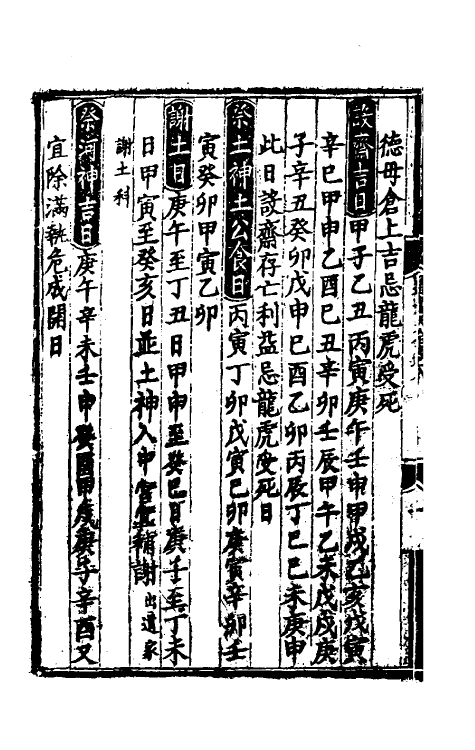 德母倉上吉忌龍虎受死
設齋吉日甲子乙丑丙寅庚午壬申甲戌乙亥戊寅
辛巳甲申乙酉巳丑辛卯壬辰甲午乙未戊戌庚
子辛丑癸卯戊申巳酉乙卯丙辰丁巳巳未庚申
此日設齋存亡利益忌龍虎受死日
祭土神土公食日丙寅丁卯戊寅巳卯庚寅辛卯壬
寅癸卯甲寅乙卯
謝土日庚午至丁丑日甲申至癸巳日庚子至丁未
日甲寅至癸亥日並土神入中宮宜補謝出道家
謝土科
祭河神吉日庚午辛未壬申癸酉甲戌庚子辛酉又
宜除滿執危成開日